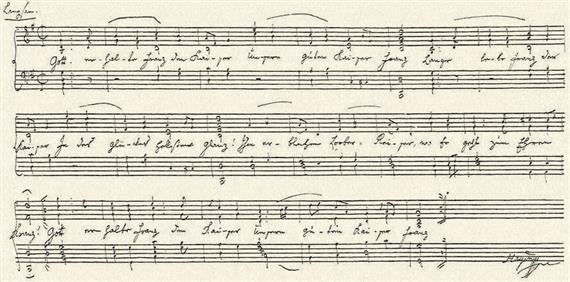 Langsam.
Gott! erhalte Franz den Kaiser Unsern guten Kaiser Franz Lange lebe Franz der
Kaiser In des Glückes hellsten Glanz! Ihm erblühen Lorber Reiser, wo Er geht zum Ehren
Kranz! Gott erhalte Franz den Kaiser Unsern guten Kaiser Franz
Haydn